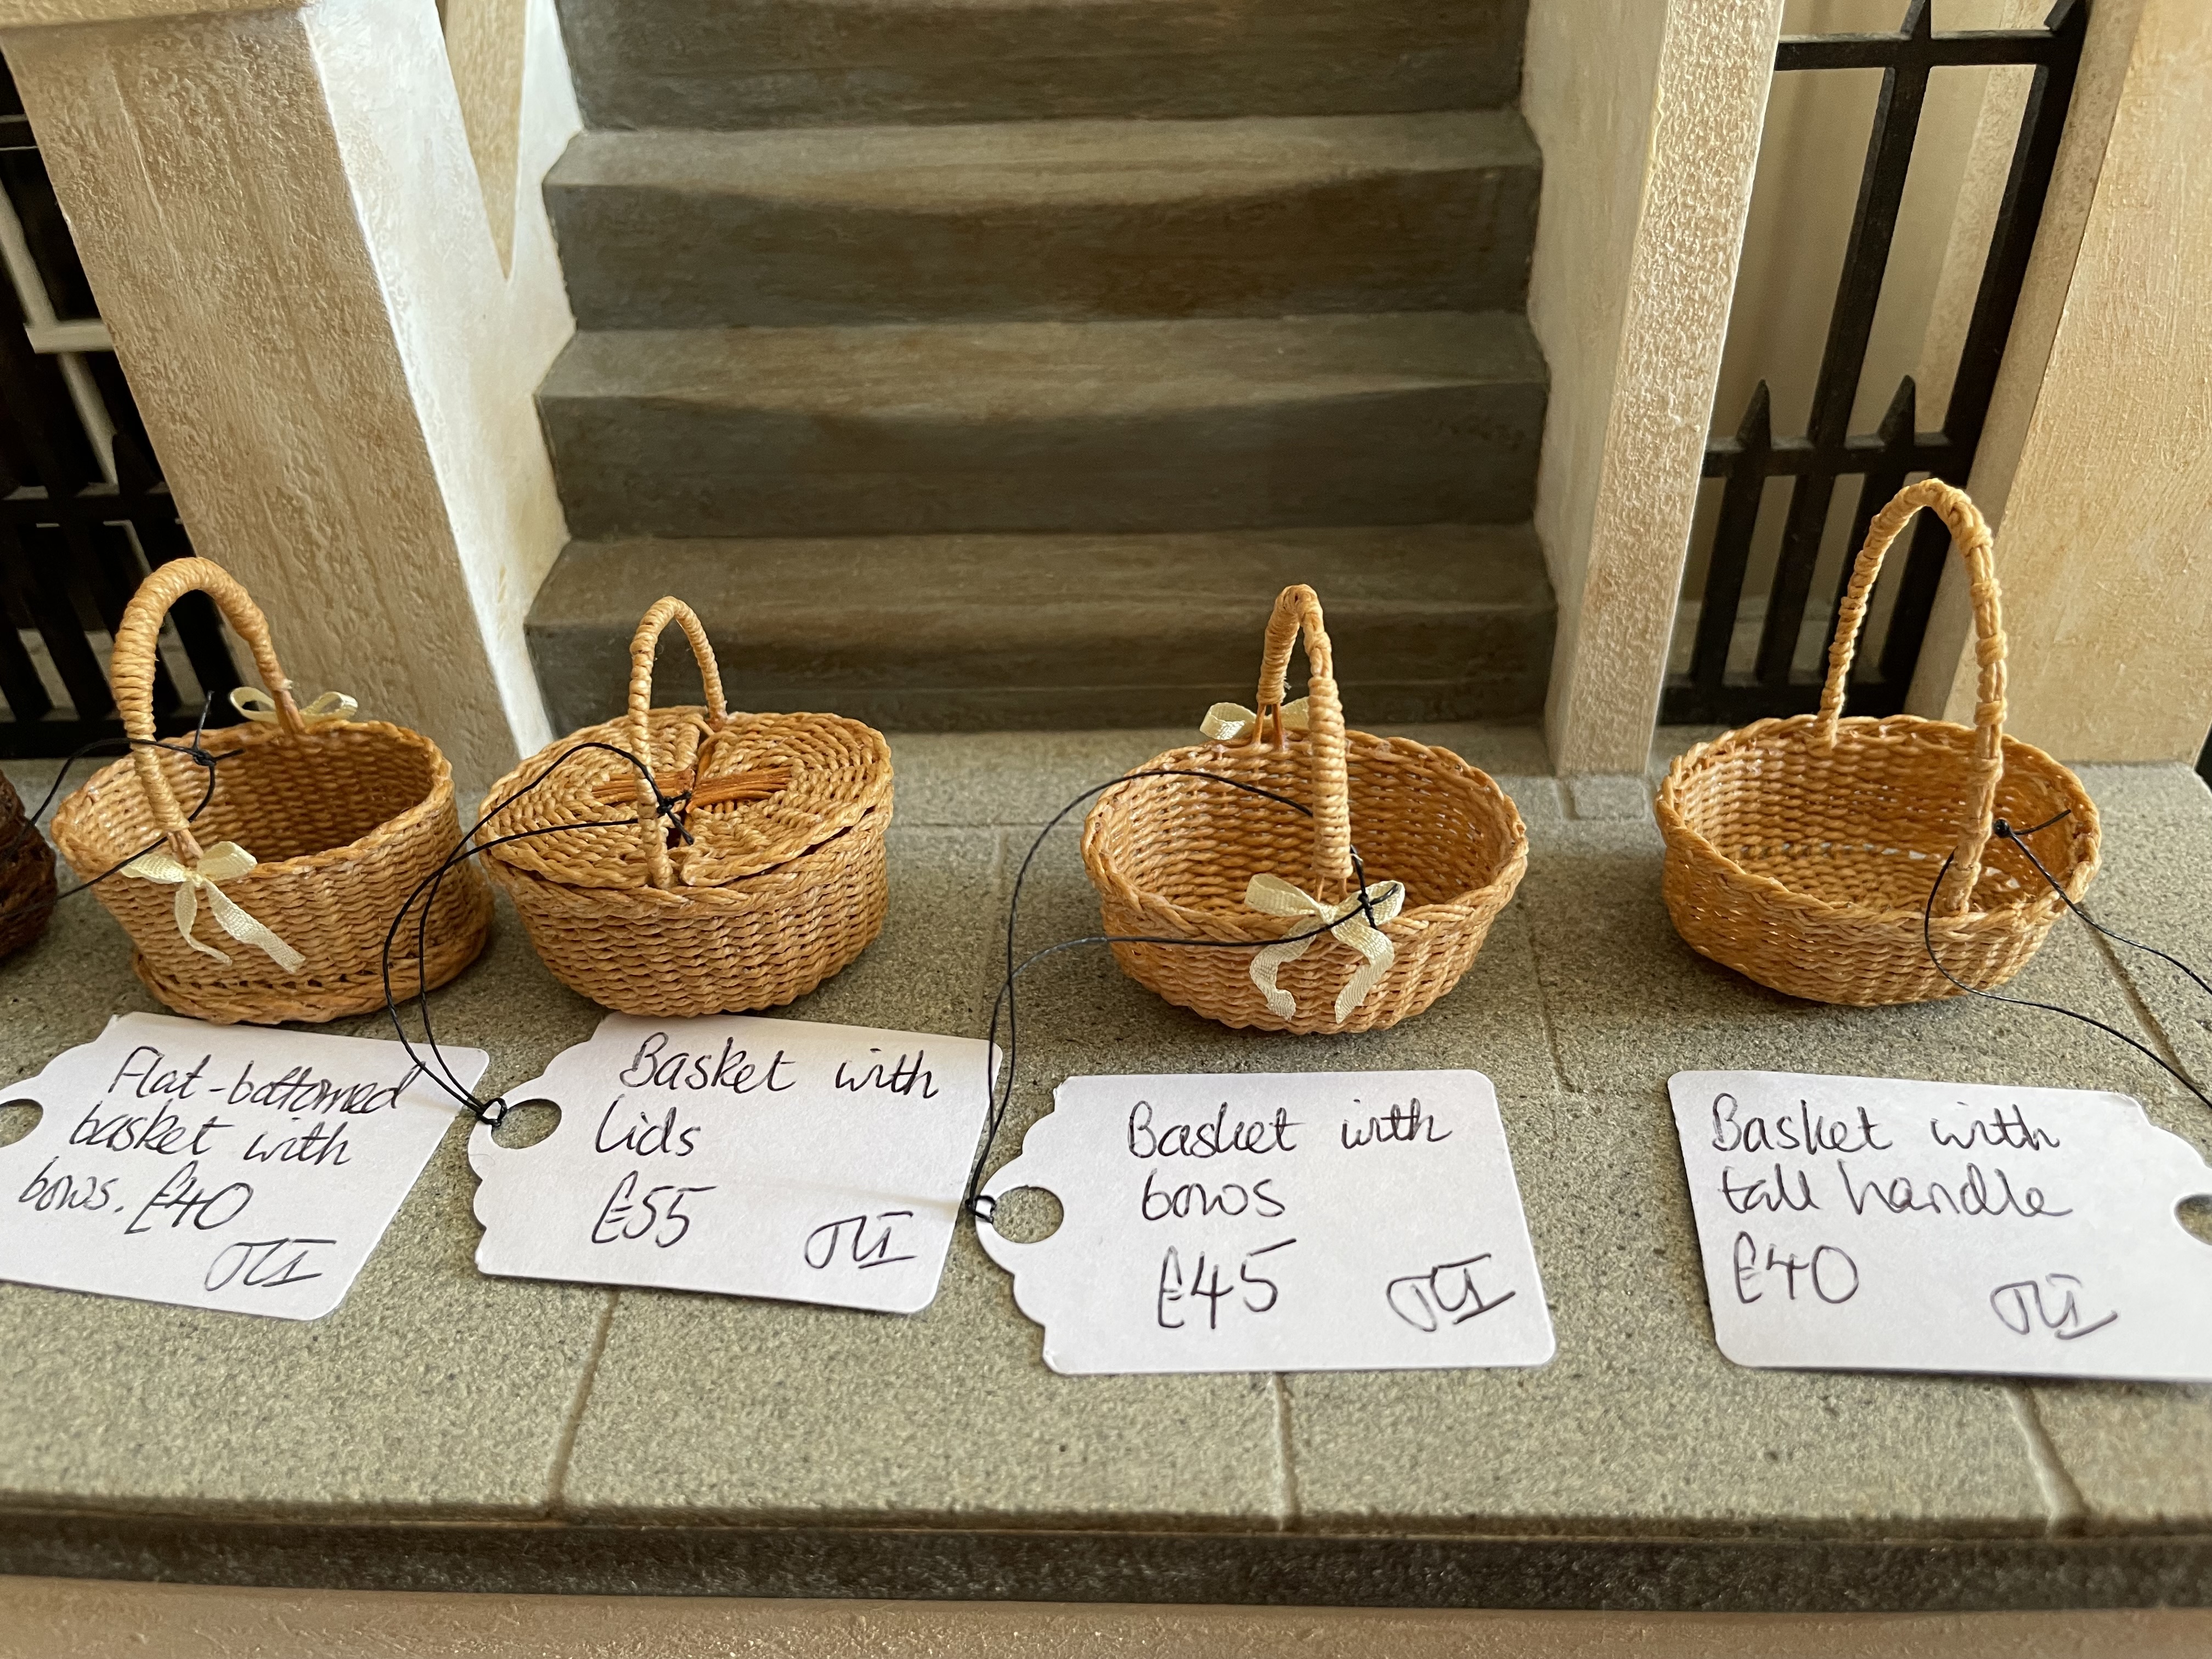 Flat-bottomed
basket with
bows. £40
Basket with
lids
£55
Basket with
bows
£45
Basket with
tall handle
£40